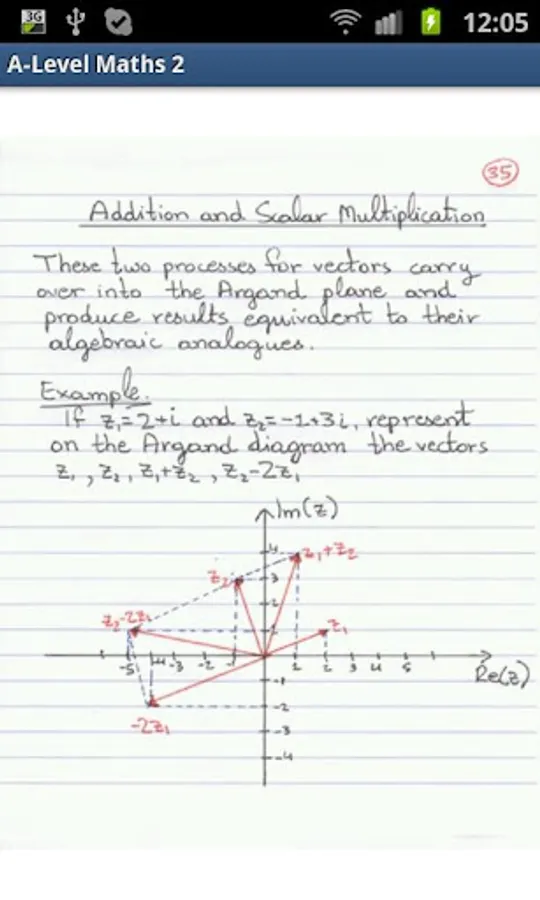 12:05
A-Level Maths 2
35
Addition and Scalar Multiplication
These two processes for vectors carry
over into the Argand plane and
produce results equivalent to their
algebraic analogues.
Example.
If z₁=2+i and z₂=-1+3i, represent
on the Argand diagram the vectors
z₁, z₂, z₁+z₂, z₂-2z₁
Im(z)
4
z₁+z₂
z₂
3
2
z₂-2z₁
1
z₁
-5 -4 -3 -2 -1 1 2 3 4 5
Re(z)
-1
-2
-2z₁
-3
-4